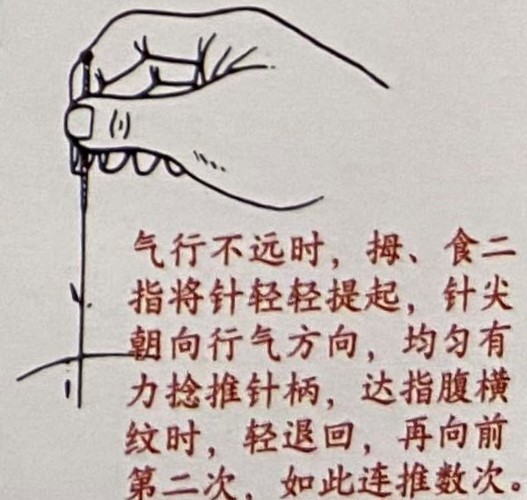 气行不远时，拇、食二
指将针轻轻提起，针尖
朝向行气方向，均匀有
力捻推针柄，达指腹横
纹时，轻退回，再向前
第二次，如此连推数次。